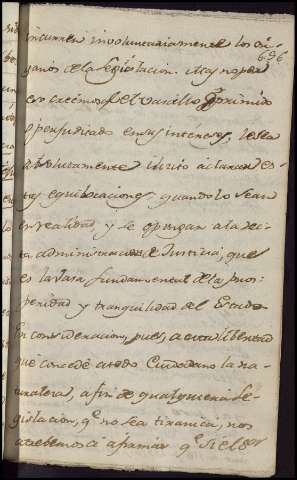 incurren involuntariamente los ór-
696
ganos de la legislacion. Mas no por
eso creémos q.e el vasallo oprimido
o perjudicado en sus intereses, le sea
absolutamente ilicito aclarar es-
tas equibocaciones, quando lo sean
en realidad, y se opongan a la rec-
ta administracion de Justicia, que
es la vasa fundamental de la pros-
peridad y tranquilidad del Estado
En consideracion, pues, a esta libertad
que concede a todo Ciudadano la na-
turaleza, a fin de qualquiera Le-
gislacion, q.e no sea tiranica, nos
atrebemos á afirmar q.e si el